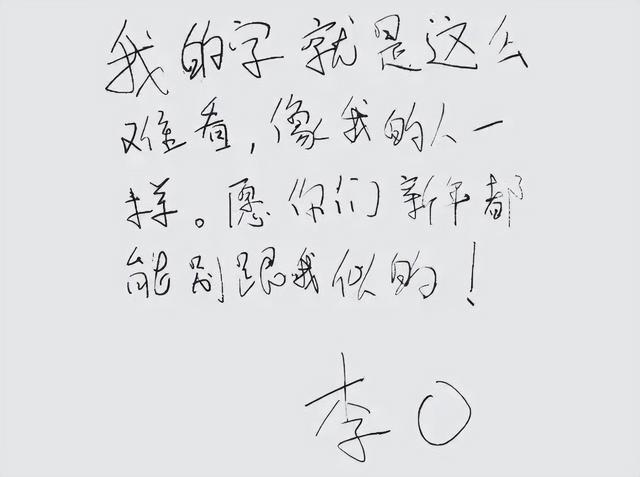 我的字就是这么
难看，像我的人一
样。愿你们新年都
能别跟我似的！
李〇